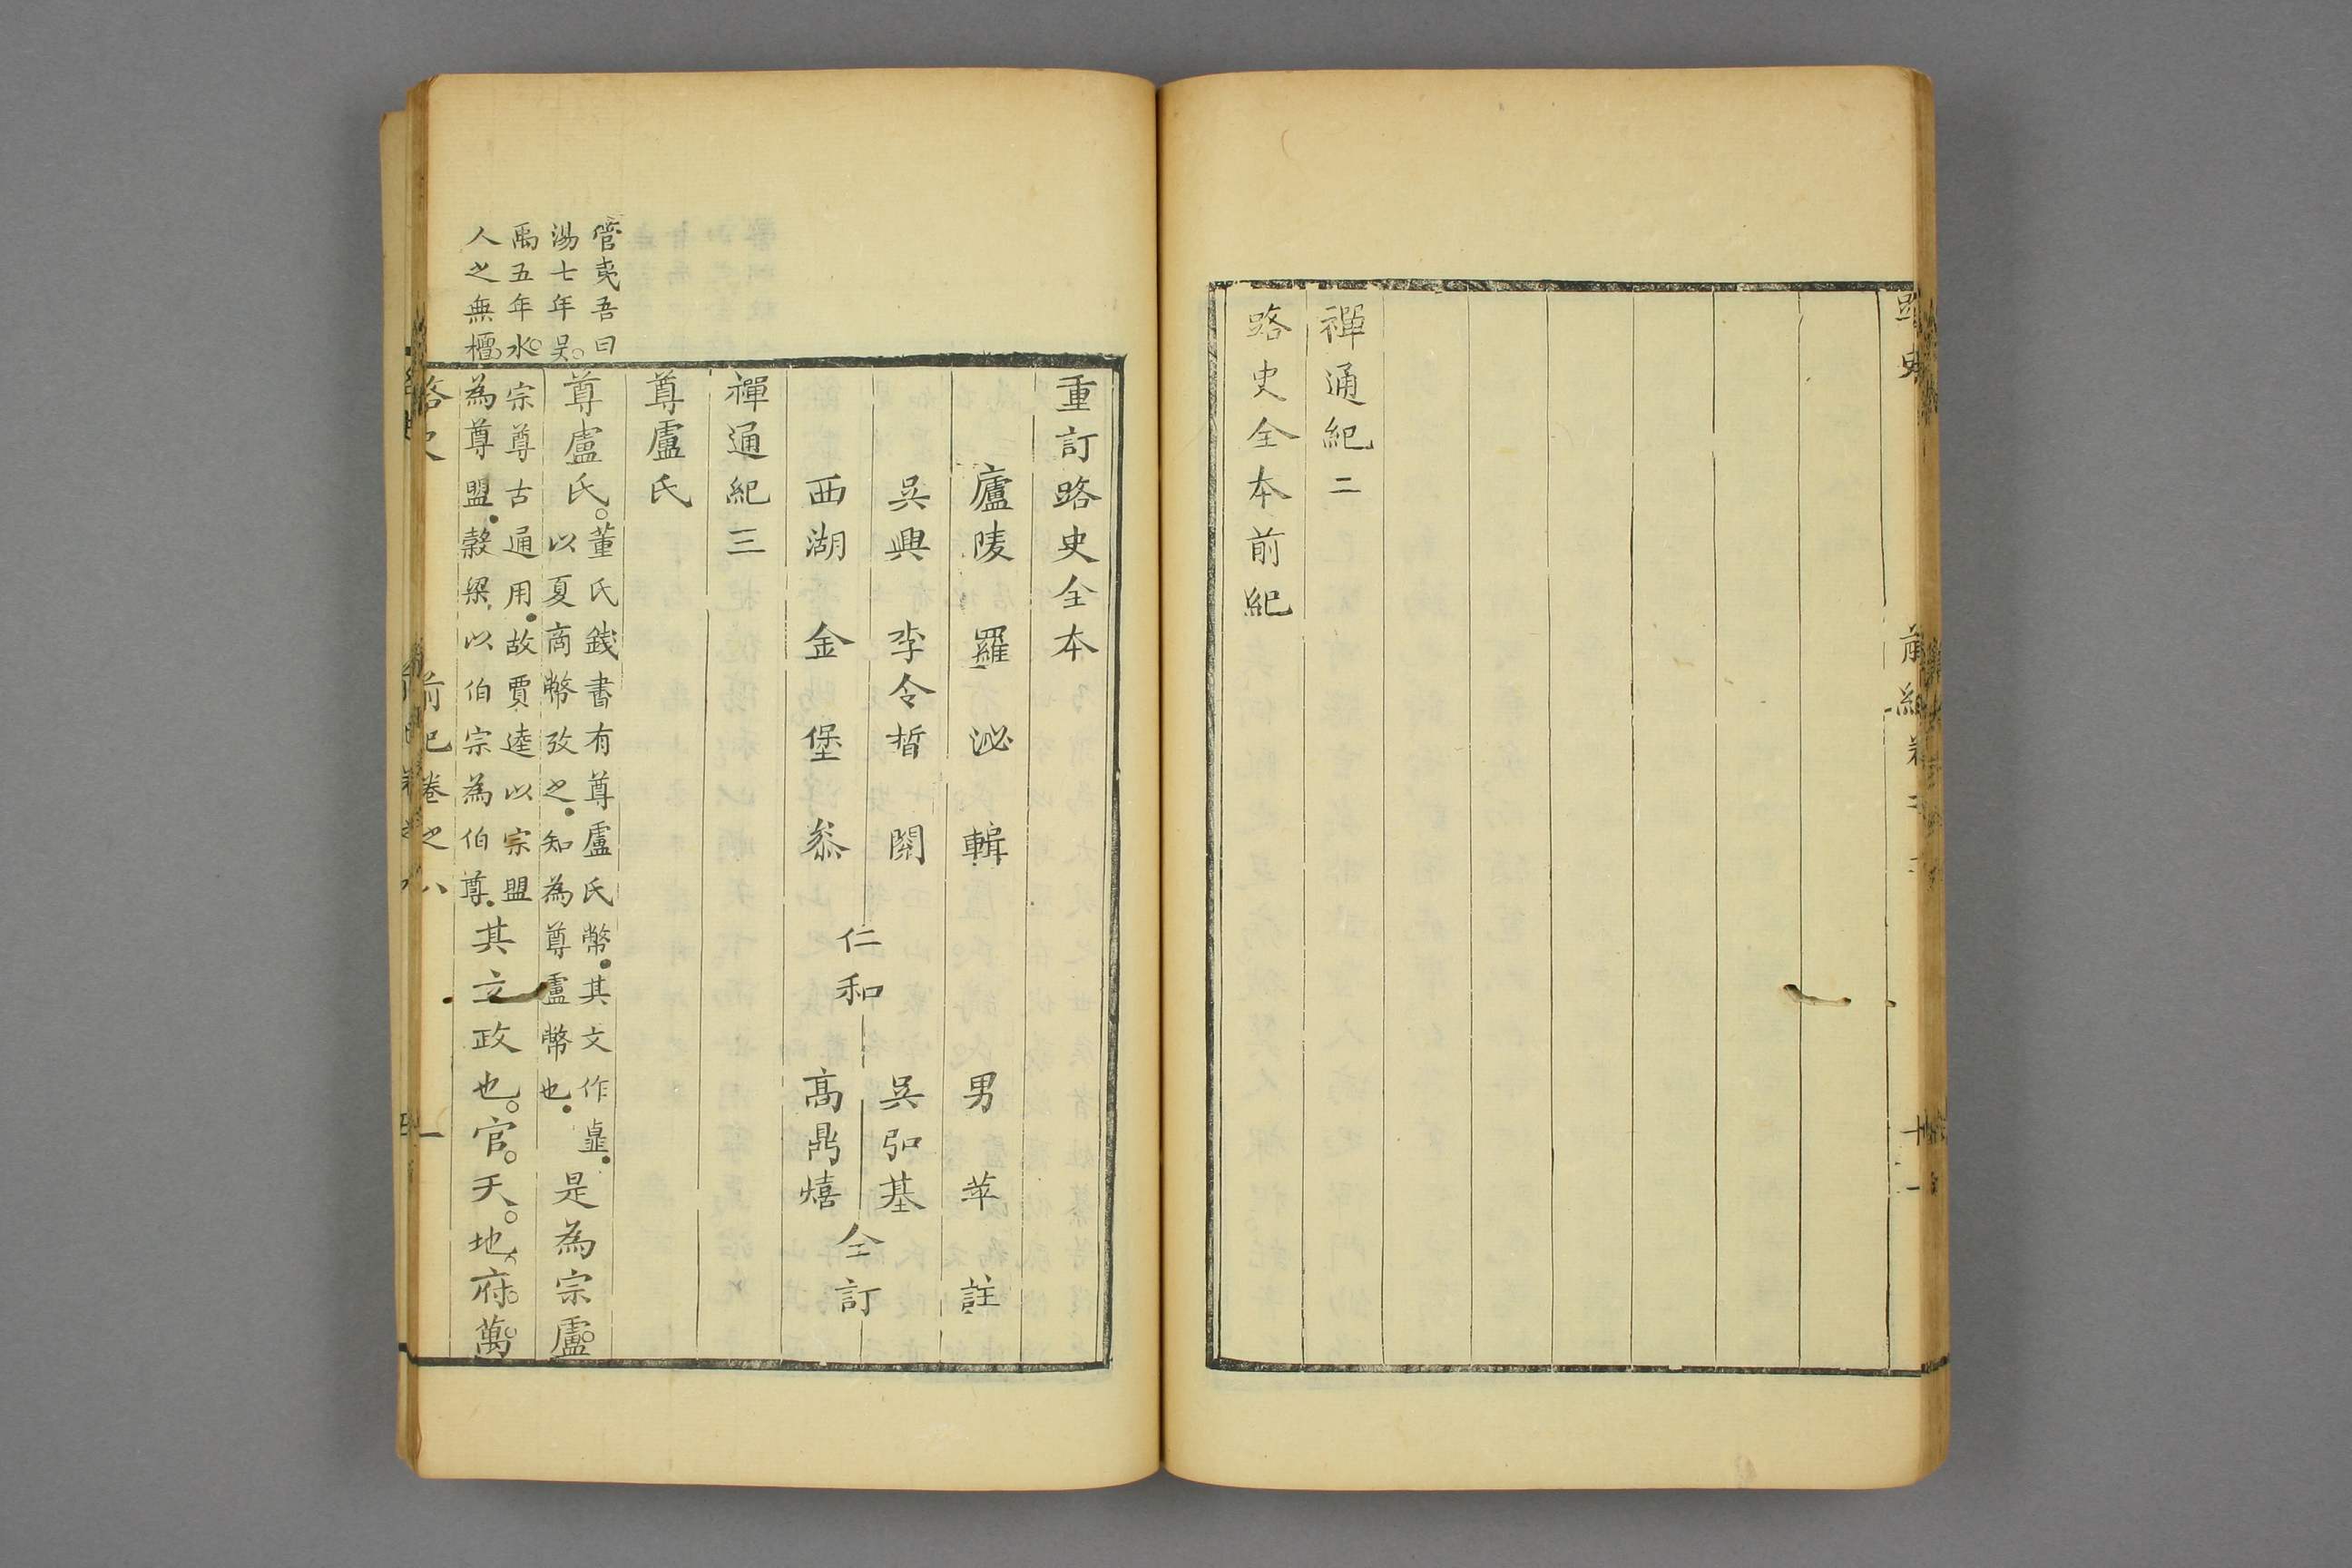 禪通紀二
路史全本前紀
重訂路史全本
廬陵 羅泌輯 男苹註
吳興 李令晳閱 仁和 吳弘基
西湖 金堡叅 高鼎熺 仝訂
禪通紀三
尊盧氏
尊盧氏董氏錢書有尊盧氏幣其文作
以夏商幣攷之知為尊盧幣也是為宗盧
宗尊古通用故賈逵以宗盟
為尊盟榖梁以伯宗為伯尊其立政也官天地府萬
管夷吾曰
湯七年旱
禹五年水
人之無䊤
路史 前紀卷之八 一